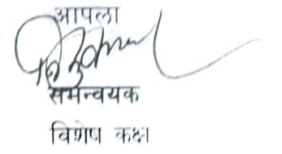 आपला
समन्वयक
विशेष कक्ष